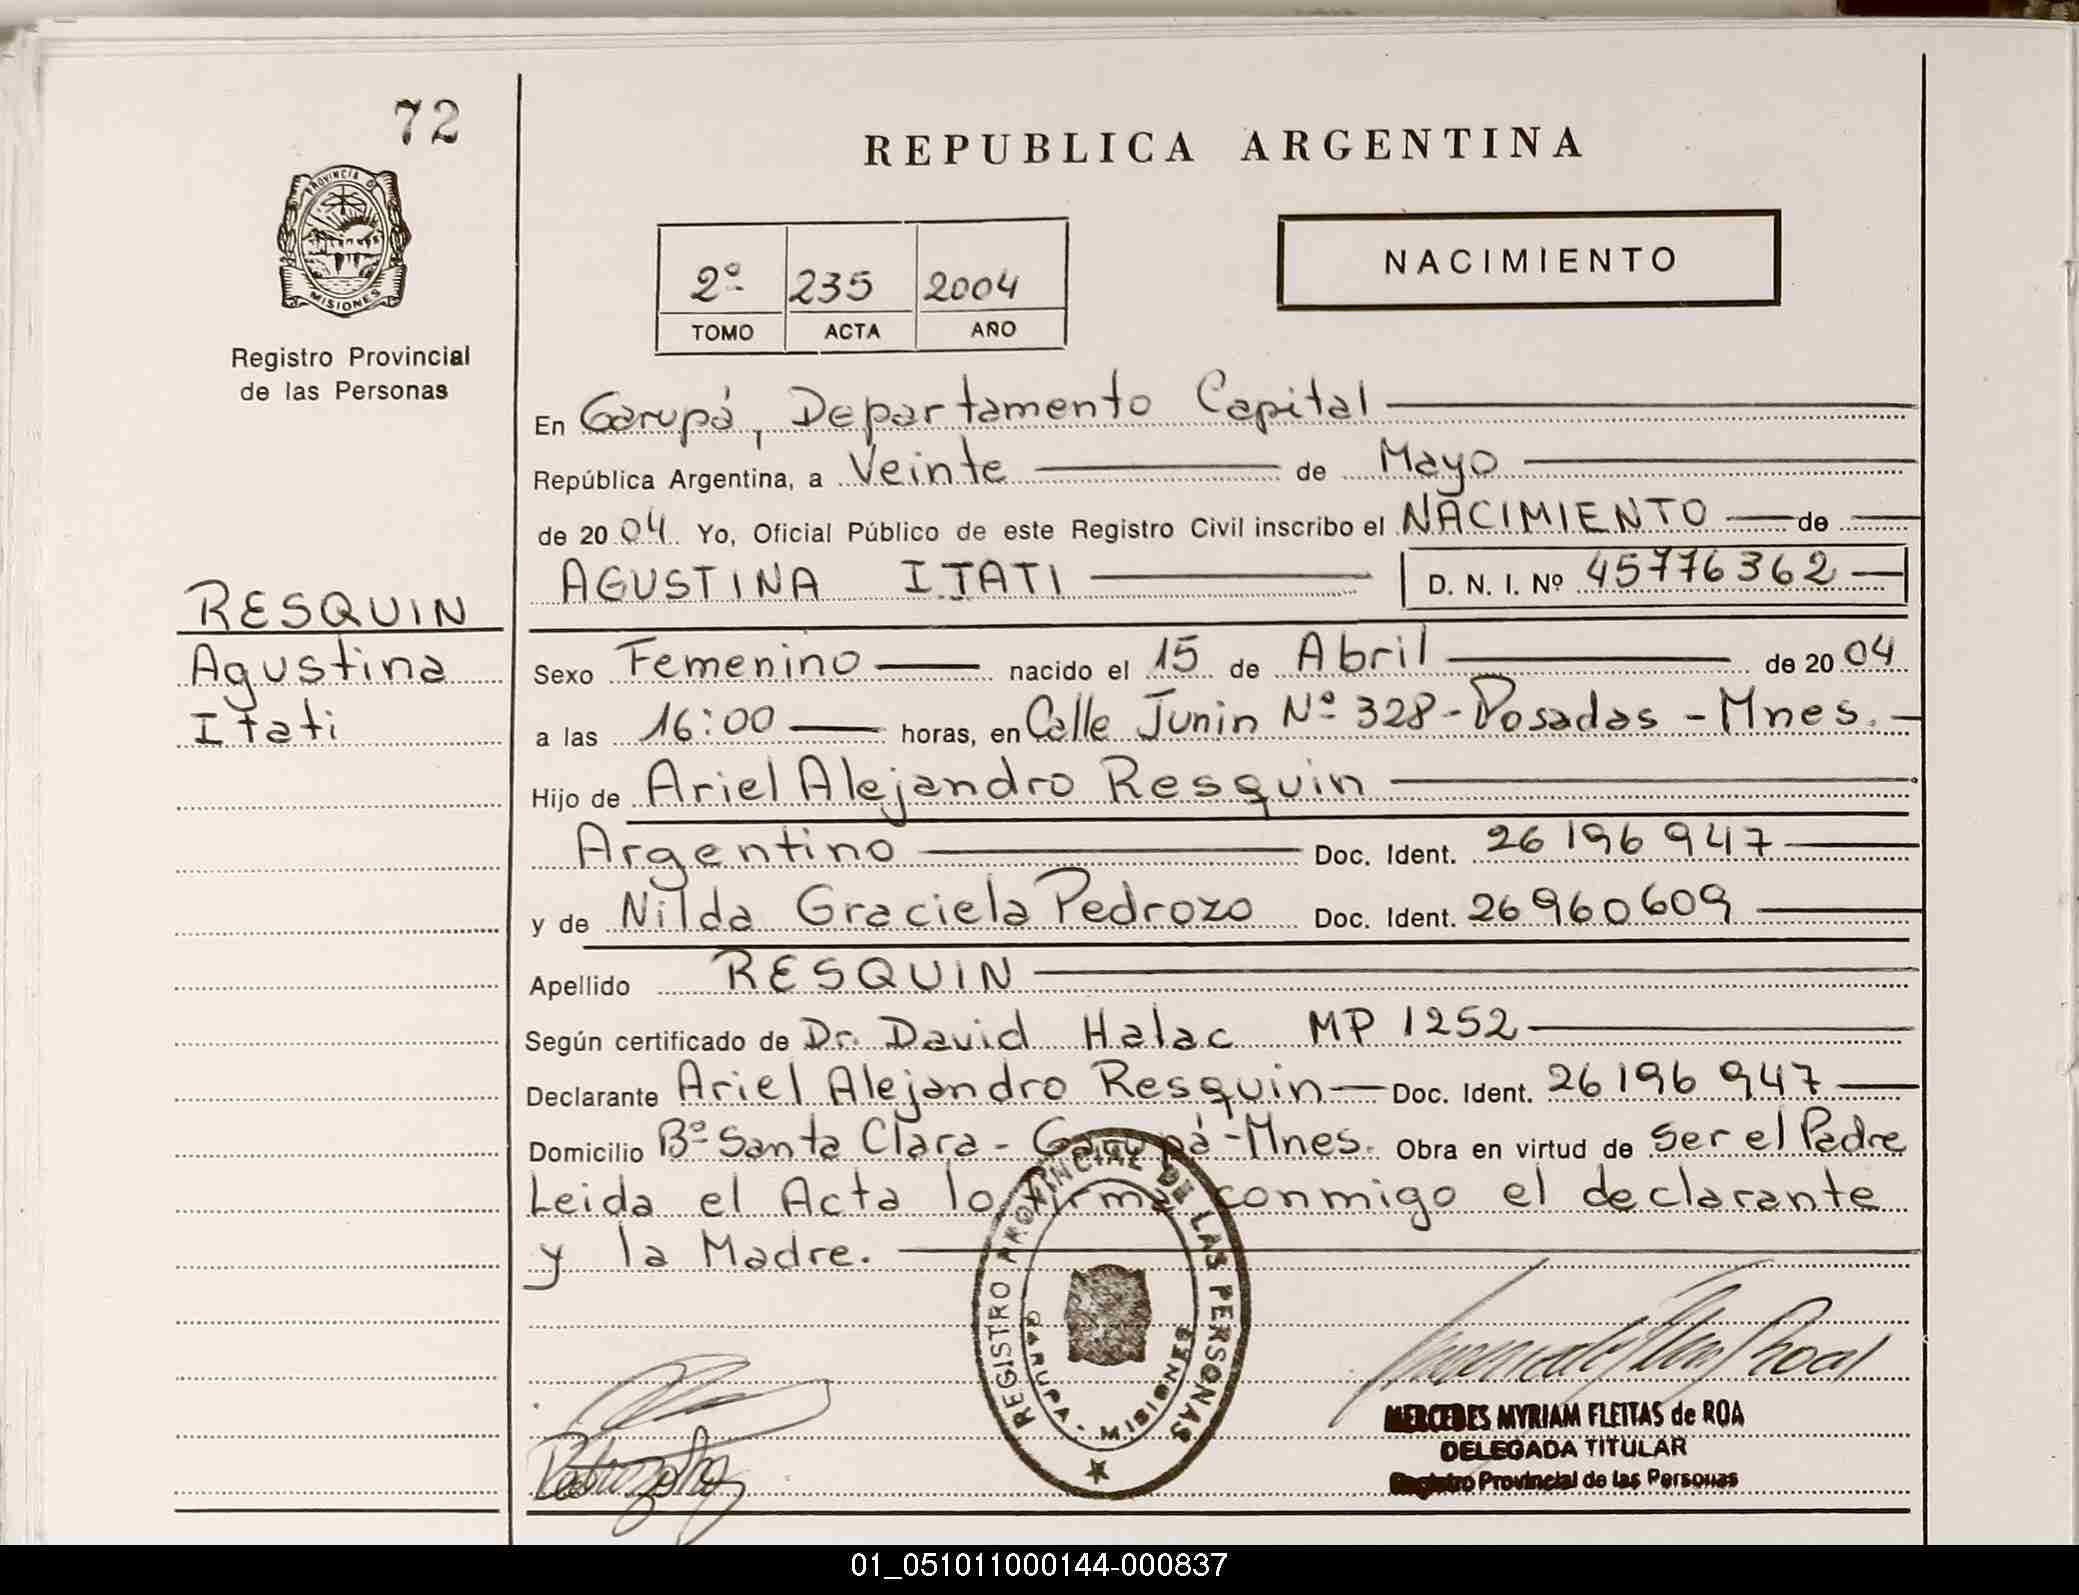 72
PROVINCIA DE
MISIONES
Registro Provincial
de las Personas
RESQUIN
Agustina
Itati
REPUBLICA ARGENTINA
2º 235 2004
TOMO ACTA AÑO
NACIMIENTO
En Garupá, Departamento Capital
República Argentina, a Veinte de Mayo
de 2004 Yo, Oficial Público de este Registro Civil inscribo el NACIMIENTO de
AGUSTINA ITATI D. N. I. Nº 45776362
Sexo Femenino nacido el 15 de Abril de 2004
a las 16:00 horas, en Calle Junin Nº 328 - Posadas - Mnes.
Hijo de Ariel Alejandro Resquin
Argentino Doc. Ident. 26196947
y de Nilda Graciela Pedrozo Doc. Ident. 26960609
Apellido RESQUIN
Según certificado de Dr. David Halac MP 1252
Declarante Ariel Alejandro Resquin Doc. Ident. 26196947
Domicilio Bº Santa Clara - Garupá - Mnes. Obra en virtud de ser el Padre
Leida el Acta lo firma conmigo el declarante
y la Madre.
REGISTRO PROVINCIAL DE LAS PERSONAS
GARUPA - MISIONES
MERCEDES MYRIAM FLEITAS de ROA
DELEGADA TITULAR
Registro Provincial de las Personas
01_051011000144-000837